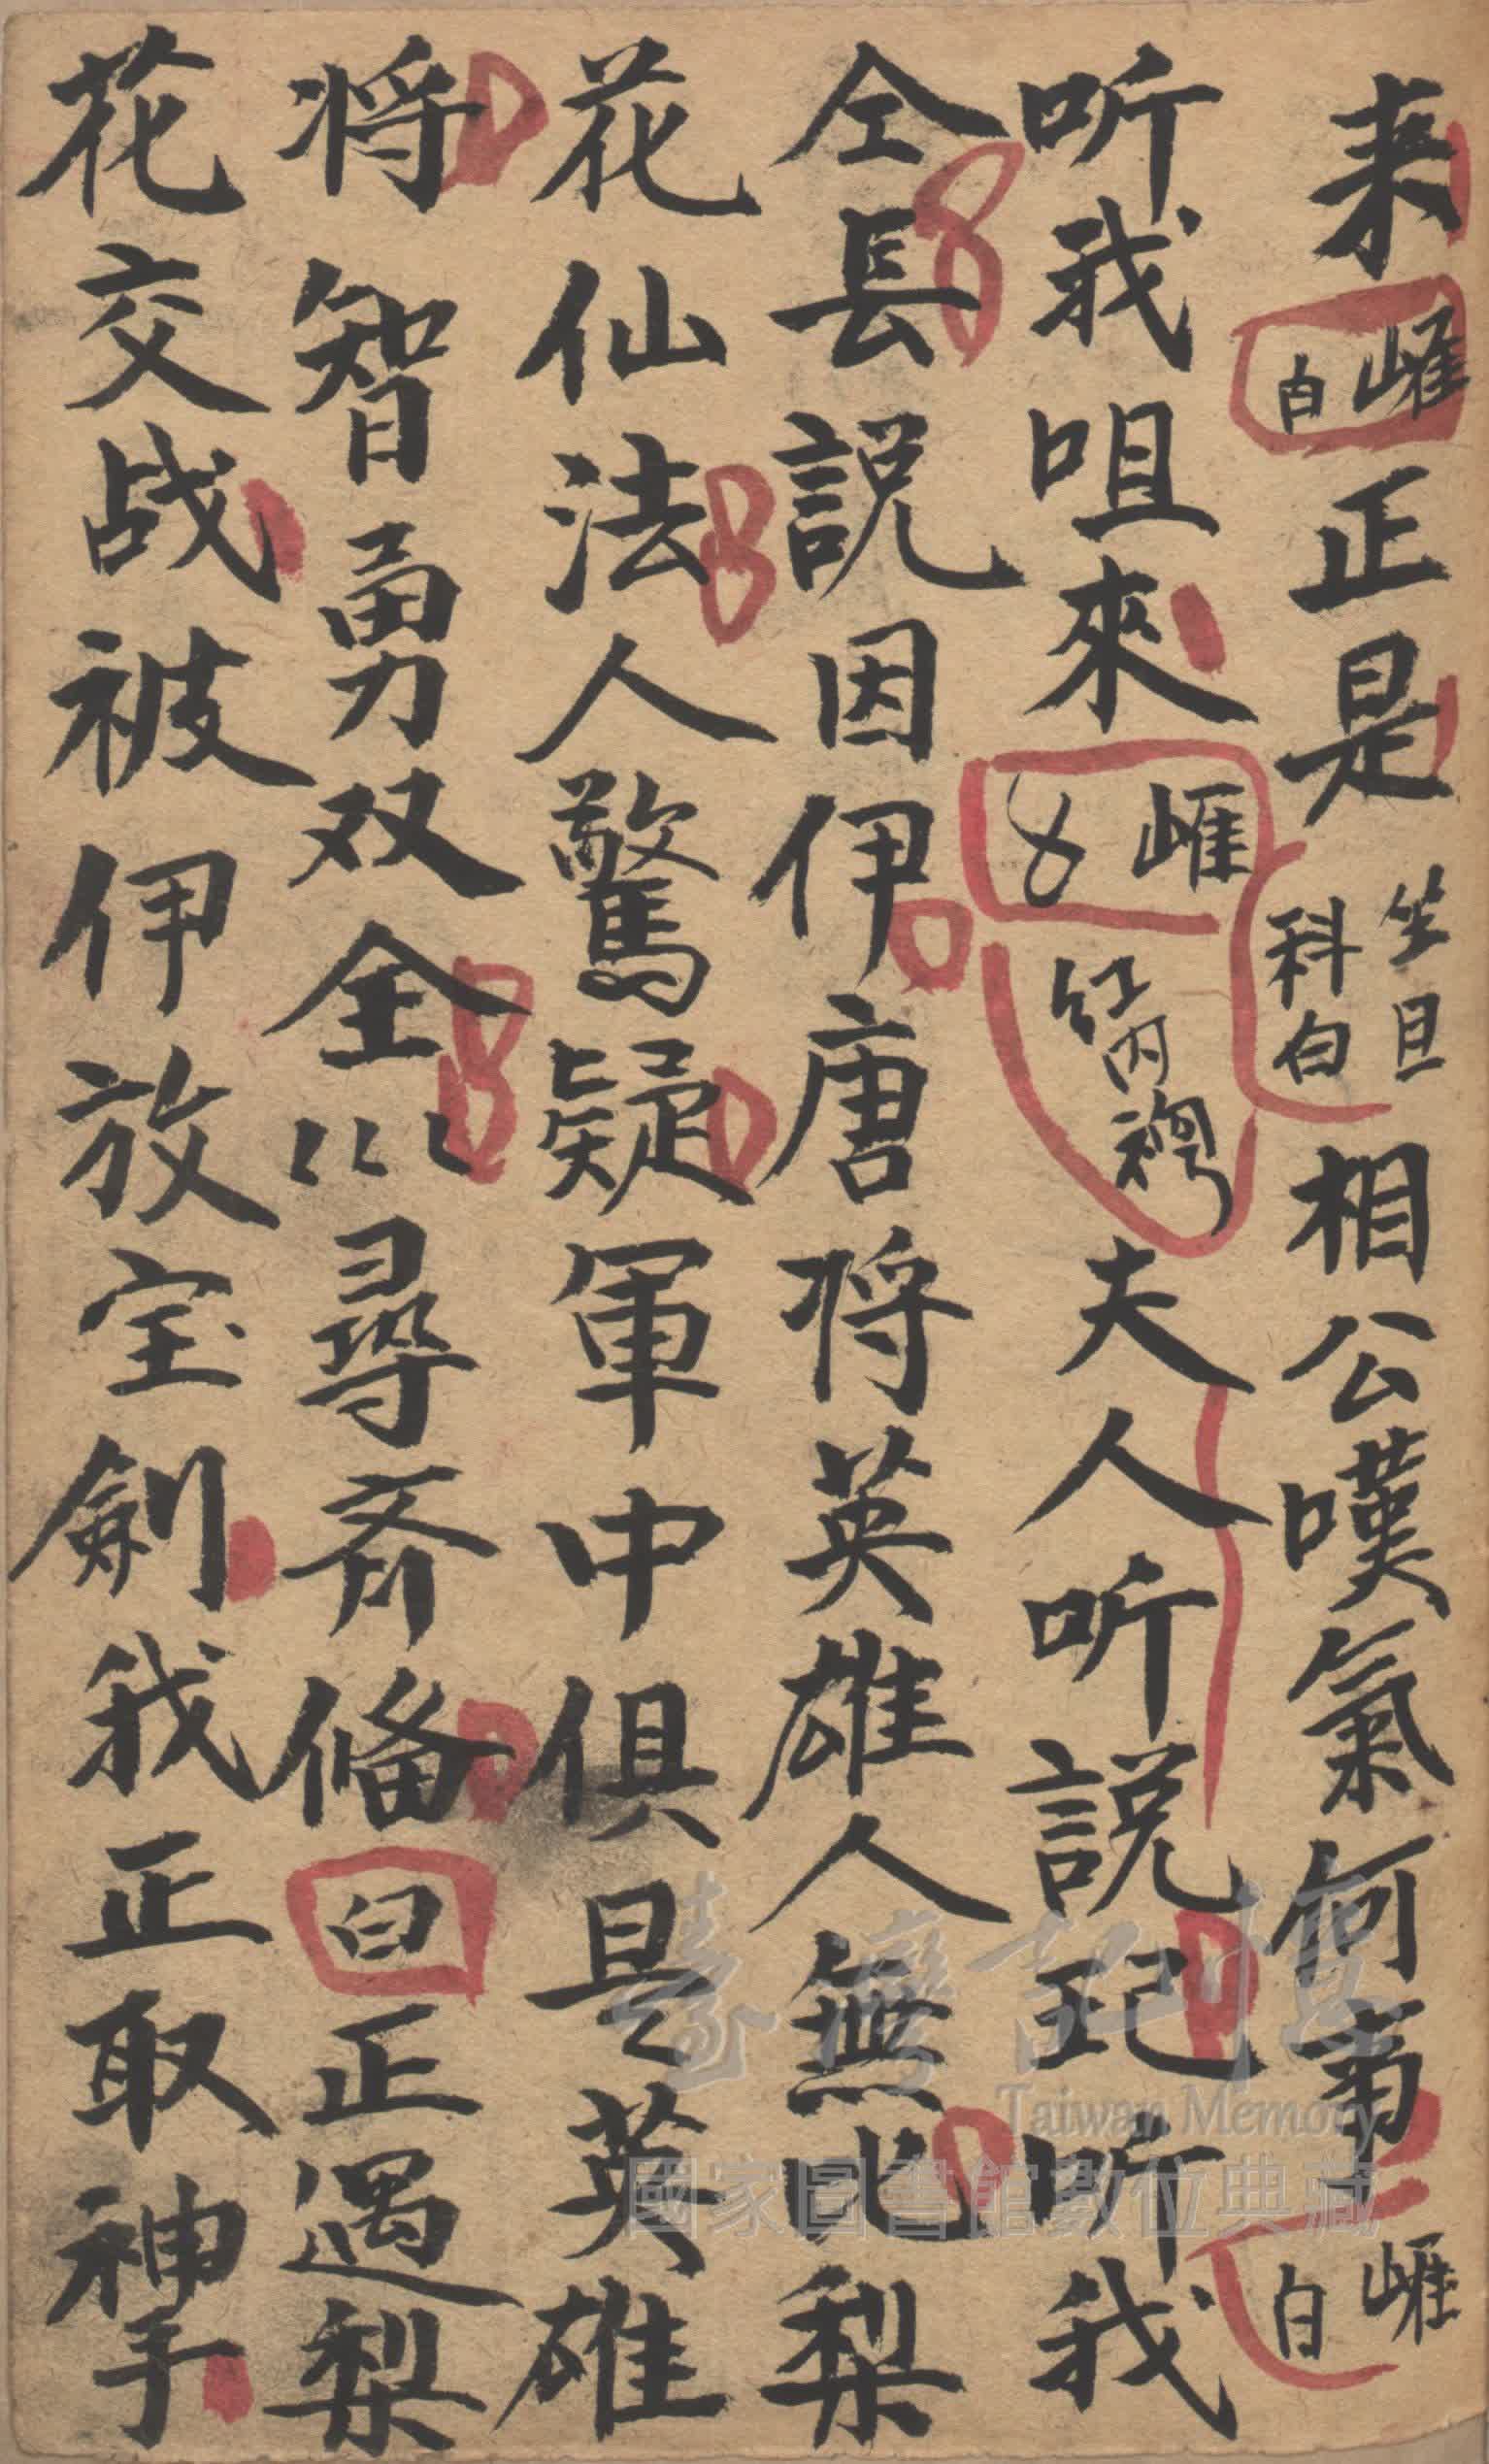 来 嶉白 正是 生旦科白 相公嘆氣何事 嶉白
听我咀來 嶉 夫人听説起听我
仝長説因伊唐将英雄人無比梨
花仙法人驚疑軍中俱是英雄
将智勇双全尋齐俻 白 正遇梨
花交战被伊放宝劍我正取神手
臺灣記憶
Taiwan Memory
國家圖書館數位典藏